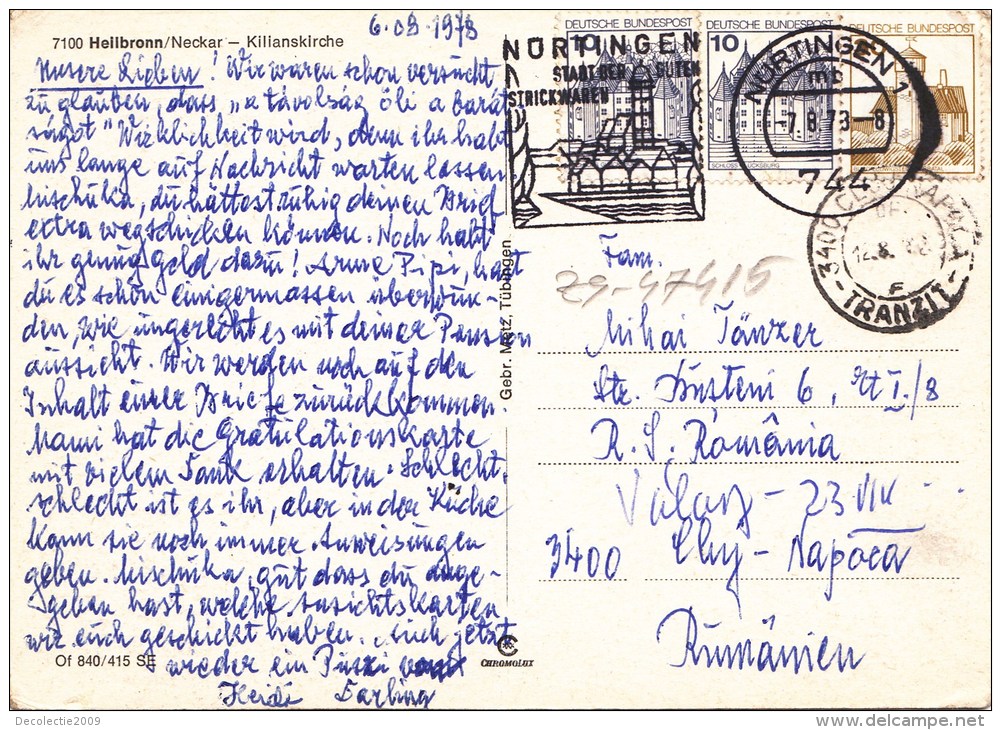 6.08.1978
7100 Heilbronn/Neckar – Kilianskirche
Unsere Lieben! Wir waren schon versucht
zu glauben, dass „a távolság öli a barát
ságot" Wirklichkeit wird, denn ihr habt
uns lange auf Nachricht warten lassen
Mischuka, du hättest ruhig deinen Brief
extra wegschicken können. Noch habt
ihr genug Geld dazu! Arme Pipi, hast
du es schon einigermassen überwun-
den, wie ungerecht es mit deiner Pension
aussieht. Wir werden noch auf den
Inhalt eurer Briefe zurückkommen.
Mami hat die Gratulationskarte
mit vielem Dank erhalten. Schlecht,
schlecht ist es ihr, aber in der Küche
kann sie noch immer Anweisungen
geben. Mischuka, gut dass du ange-
geben hast, welche Ansichtskarten
wir euch geschickt haben. Auch jetzt
wieder ein Puszi
Heidi Darling
Of 840/415 SE
Gebr. Metz, Tübingen
CHROMOLUX
DEUTSCHE BUNDESPOST
10
DEUTSCHE BUNDESPOST
10
SCHLOSS GLÜCKSBURG
DEUTSCHE BUNDESPOST
NÜRTINGEN
STADT DER GUTEN
STRICKWAREN
NÜRTINGEN 1
mb
-7.8.78-8
744
3400 CLUJ-NAPOCA
12.8.
TRANZIT
Fam.
29-47415
Mihai Tänzer
Str. Busteni 6, et I./8
R.S. România
23 VIII
3400 Cluj-Napoca
Rumänien
Decolectie2009
delcampe.net